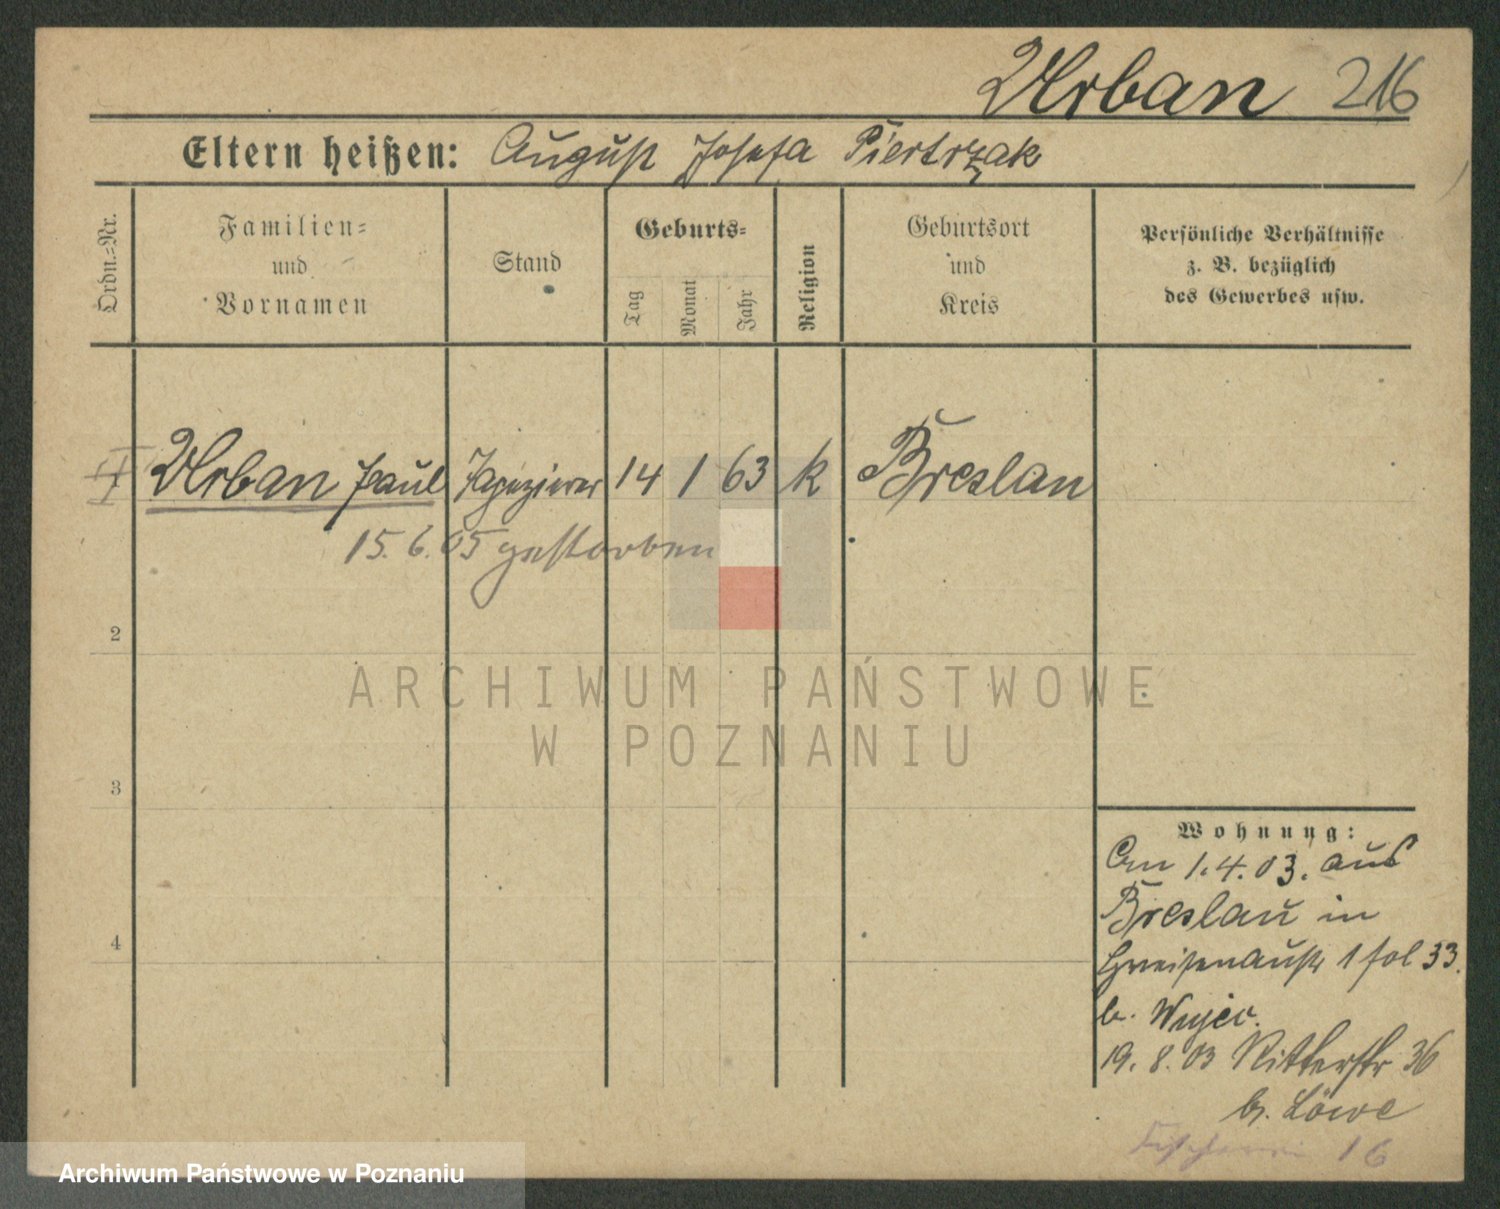 Urban 216
Eltern heißen: August Josefa Piertrzak
Ordn.-Nr.
Familien-
und
Vornamen
Stand
Geburts-
Tag
Monat
Jahr
Religion
Geburtsort
und
Kreis
Persönliche Verhältnisse
z. B. bezüglich
des Gewerbes usw.
1 Urban Paul Tapezierer 14 1 63 k Breslau
15. 6. 05 gestorben
2
3
4
Wohnung:
Am 1.4.03. aus
Breslau in
Gneisenaustr 1 fol 33.
b. Wujec.
19. 8. 03 Ritterstr 36
b. Löwe
Fischerei 16
ARCHIWUM PAŃSTWOWE
W POZNANIU
Archiwum Państwowe w Poznaniu